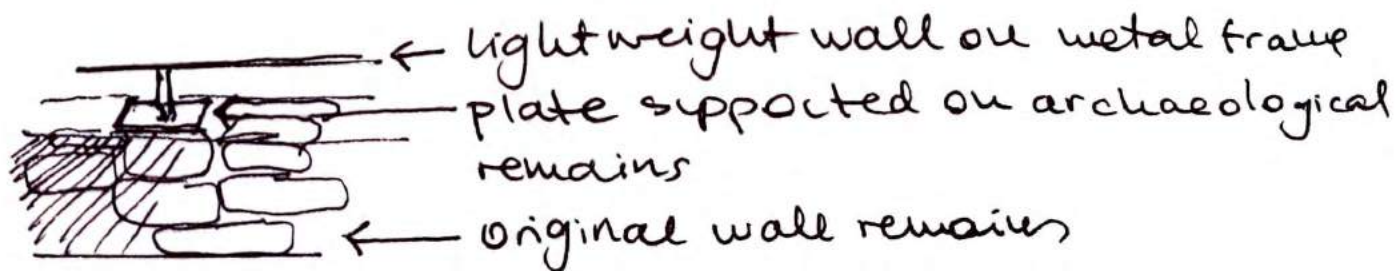 lightweight wall on metal frame
plate supported on archaeological
remains
original wall remains